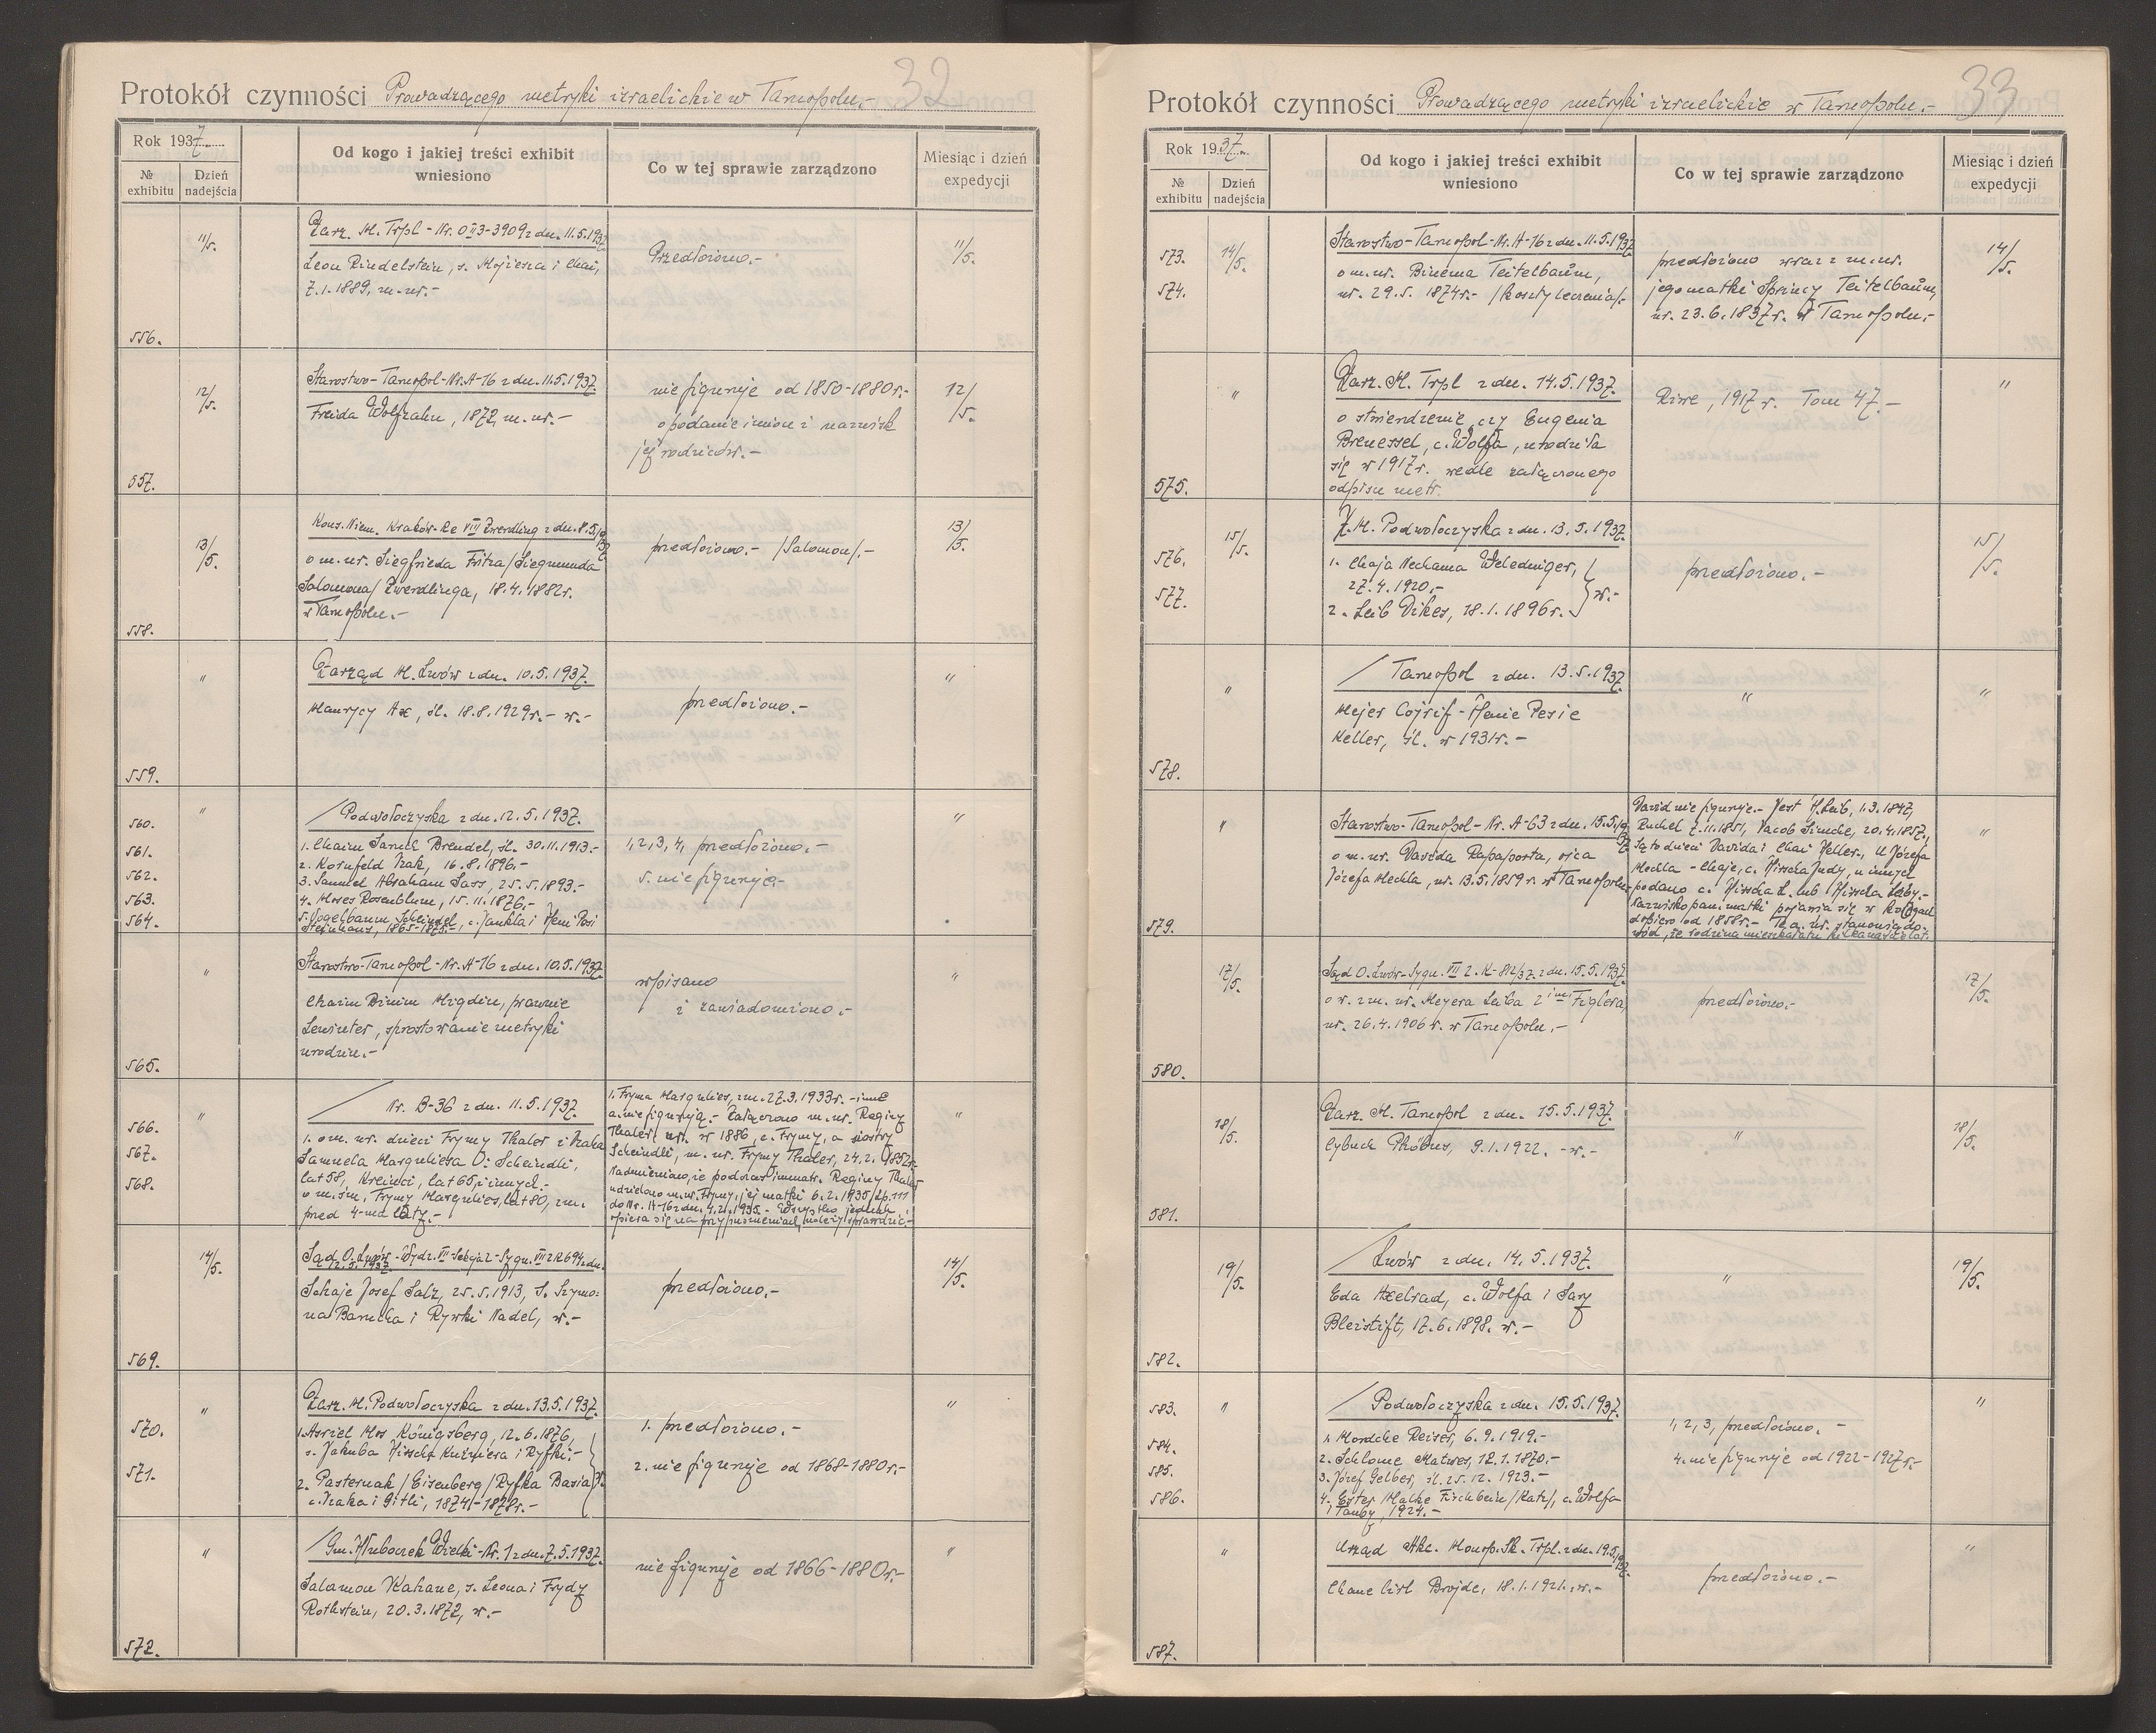 Protokół czynności Prowadzącego metryki izraelickie w Tarnopolu.-
32
Rok 1937.
№ exhibitu
Dzień nadejścia
Od kogo i jakiej treści exhibit wniesiono
Co w tej sprawie zarządzono
Miesiąc i dzień expedycji
556.
11/5.
Zarz. M. Trpl - Nr. 0II3-3909 z dn. 11.5.1937
Leon Rindelstein, s. Mojżesza i Chai,
7.1.1889, m. ur.-
Przedłożono.-
11/5.
557.
12/5.
Starostwo-Tarnopol-Nr.A-16 z dn. 11.5.1937.
Freida Wolfzahn, 1872, m. ur.-
nie figuruje od 1850-1880r.-
o podanie imion i nazwisk
jej rodziców.-
12/5.
558.
13/5.
Kons. Niem. Kraków-Re VIII Zwerdling z dn. 8.5.1937
o m. ur. Siegfrieda Fritza /Siegmunda
Salomona/ Zwerdlinga, 18.4.1882r.
w Tarnopolu.-
przedłożono.- /Salomon/.-
13/5.
559.
"
Zarząd M. Lwów z dn. 10.5.1937.
Maurycy Ax, śl. 18.8.1929r.- w.-
przedłożono.-
"
560.
561.
562.
563.
564
"
/ Podwołoczyska z dn. 12.5.1937.
1. Chaim Samuel Brendel, śl. 30.11.1913.-
2. Kornfeld Izak, 16.8.1896.-
3. Samuel Abraham Sass, 25.5.1893.-
4. Moses Rosenblum, 15.11.1876.-
5. Vogelbaum Scheindel, c. Jankla i Heni Rosi
Steinhaus, 1865-1875.-
1, 2, 3, 4, przedłożono.-
5. nie figuruje.-
"
565.
"
Starostwo-Tarnopol-Nr.A-16 z dn. 10.5.1937.
Chaim Binim Migden, prawnie
Lewinter, sprostowanie metryki
urodzin.-
wpisano
i zawiadomiono.-
"
566.
567.
568.
"
/ Nr. B-36 z dn. 11.5.1937.
1. o m. ur. dzieci Frymy Thaler i Izaka
Samuela Marguliesa: Scheindli,
lat 58, Kreinci, lat 65, i innych.-
o m. śm. Frymy Margulies, lat 80, zm.
przed 4-ma laty.-
1. Fryma Margulies, zm. 27.3.1933r. - inne
a. nie figurują.- Załączono m. ur. Reginy
Thaler, ur. w 1886, c. Frymy, a siostry
Scheindli, m. ur. Frymy Thaler, 24.2.1852r.-
Nadmieniono, że podczas immatr. Reginy Thaler
udzielono m. ur. Frymy, jej matki 6.2.1935/Lp. 111
do Nr. A-16 z dn. 4.2.1935.- Wszystko jednak
opiera się na przypuszczeniach, należy sprawdzić.-
"
569.
14/5.
Sąd O. Lwów - Wydz. VII-Sekcja 2-Sygn. VII 2 R 694 z dn.
12.5.1937.
Schaje Josef Salz, 25.5.1913, s. Szymo=
na Barucha i Rywki Nadel, w.-
przedłożono.-
14/5.
570.
571.
"
Zarz. M. Podwołoczyska z dn. 13.5.1937.
1. Asriel Mos Königsberg, 12.6.1876,
s. Jakuba Hirscha Kuśnierza i Ryfki.-
2. Pasternak /Eisenberg/ Ryfka Basia
c. Izaka i Gitli, 1874-1878r.-
1. przedłożono.-
2. nie figuruje od 1868-1880r.-
"
572.
"
/ Gm. Hłuboczek Wielki-Nr. 1 z dn. 7.5.1937.
Salamon Kahane, s. Leona i Frydy
Rothstein, 20.3.1872, w.-
nie figuruje od 1866-1880r.-
"
Protokół czynności Prowadzącego metryki izraelickie w Tarnopolu.-
33
Rok 1937.
№ exhibitu
Dzień nadejścia
Od kogo i jakiej treści exhibit wniesiono
Co w tej sprawie zarządzono
Miesiąc i dzień expedycji
573.
574.
14/5.
Starostwo-Tarnopol-Nr.A-16 z dn. 11.5.1937
o m. ur. Binema Teitelbaum,
ur. 29.5.1874r.- /koszty leczenia/.-
przedłożono wraz z m. ur.
jego matki Sprincy Teitelbaum,
ur. 23.6.1837r. w Tarnopolu.-
14/5.
575.
"
Zarz. M. Trpl z dn. 14.5.1937.
o stwierdzenie, czy Eugenia
Brenessel, c. Wolfa, urodziła
się w 1917r. wedle załączonego
odpisu metr.
Riwe, 1917 r. Tom 47.-
"
576.
577.
15/5.
Z. M. Podwołoczyska z dn. 13.5.1937.
1. Chaja Nechama Weledniger,
27.4.1920.-
2. Leib Dikes, 18.1.1896r.
w.-
przedłożono.-
15/5.
578.
"
/ Tarnopol z dn. 13.5.1937.
Mejer Cojrif-Henie Pesie
Keller, śl. w 1931r.-
"
"
579.
"
Starostwo-Tarnopol-Nr. A-63 z dn. 15.5.1937
o m. ur. Dawida Rapaporta, ojca
Józefa Mechla, ur. 13.5.1859r. w Tarnopolu.-
Dawid nie figuruje.- Jest H. Leib, 1.3.1847,
Ruchel 7.11.1851, Jacob Simche, 20.4.1857,
Są to dzieci Dawida i Chai Heller. U Józefa
Mechla - Chaje, c. Hirscha Judy, u innych
podano c. Hirscha L. lub Hirscha Leiby.-
Nazwisko pani matki pojawia się w księgach
dopiero od 1858r.- Te a. ur. stanowią do-
wód, że rodzina mieszkała tu kilkanaście lat.
"
580.
17/5.
Sąd O. Lwów-Sygn. VII 2. K-812/37. z dn. 15.5.1937.
o w. z m. ur. Meyera Leiba 2 im. Figlera,
ur. 26.4.1906r. w Tarnopolu.-
przedłożono.-
17/5.
581.
18/5.
Zarz. M. Tarnopol z dn. 15.5.1937.
Cybuch Phöbus, 9.1.1922. -w.-
"
18/5.
582.
19/5.
/ Lwów z dn. 14.5.1937.
Eda Axelrad, c. Wolfa i Sary
Bleistift, 17.6.1898. w.-
"
19/5.
583.
584.
585.
586.
"
/ Podwołoczyska z dn. 15.5.1937.
1. Mordche Reiser, 6.9.1919.-
2. Schlome Matzies, 12.1.1870.-
3. Józef Gelber, śl. 25.12.1923.-
4. Ester Malke Fischbein /Katz/, c. Wolfa
i Tauby, 1924.-
1, 2, 3, przedłożono.-
4. nie figuruje od 1922-1927r.-
"
587.
"
Urząd Akc. Monop. Sk. Trpl. z dn. 19.5.1937.
Chane Cirl Brojde, 18.1.1921., w.-
przedłożono.-
"